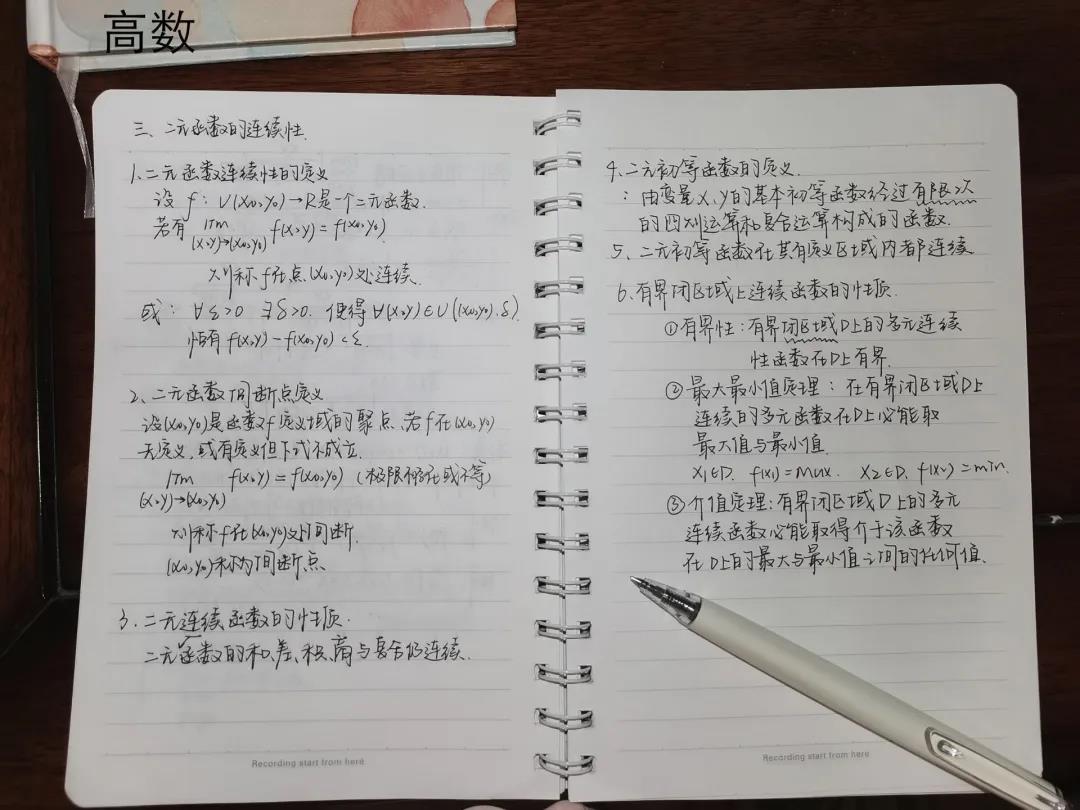 高数
三、二元函数的连续性.
1、二元函数连续性的定义
设 f: U(x₀,y₀)→R是一个二元函数.
若有 lim f(x,y)=f(x₀,y₀)
(x,y)→(x₀,y₀)
则称f在点(x₀,y₀)处连续.
或: ∀ε>0 ∃δ>0. 使得∀(x,y)∈U((x₀,y₀).δ).
恒有 f(x,y)-f(x₀,y₀)<ε.
2、二元函数间断点定义
设(x₀,y₀)是函数f定义域的聚点.若f在(x₀,y₀)
无定义,或有定义但下式不成立.
lim f(x,y)=f(x₀,y₀) (极限不存在或不等)
(x,y)→(x₀,y₀)
则称f在(x₀,y₀)处间断.
(x₀,y₀)称为间断点
3、二元连续函数的性质.
二元函数的和、差、积、商与复合仍连续.
Recording start from here
4、二元初等函数的定义.
:由变量x、y的基本初等函数经过有限次
的四则运算和复合运算构成的函数.
5、二元初等函数在其有定义区域内都连续
6、有界闭区域上连续函数的性质.
①有界性:有界闭区域D上的多元连续
性函数在D上有界.
②最大最小值定理: 在有界闭区域D上
连续的多元函数在D上必能取
最大值与最小值.
x₁∈D. f(x₁)=max. x₂∈D. f(x₂)=min.
③介值定理:有界闭区域D上的多元
连续函数必能取得介于该函数
在D上的最大与最小值之间的任何值.
Recording start from here